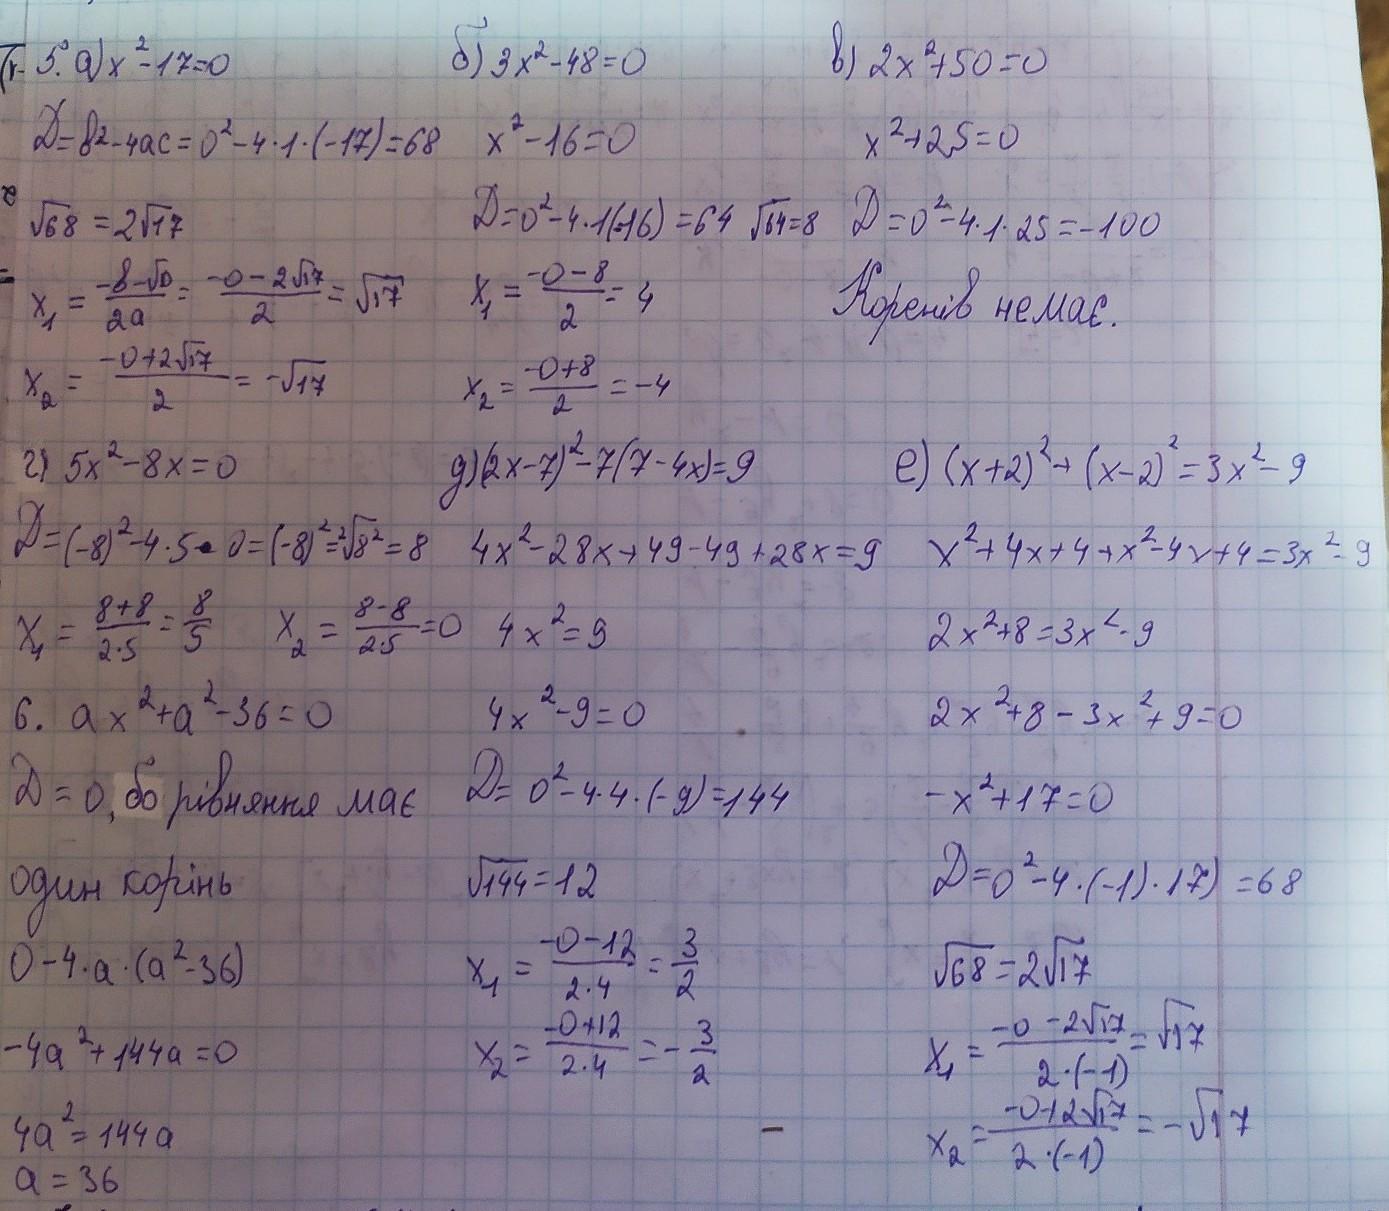 5. а) x²-17=0
D=в²-4ac=0²-4·1·(-17)=68
√68=2√17
x₁ = (-в-√D)/2a = (-0-2√17)/2 = √17
x₂ = (-0+2√17)/2 = -√17
б) 3x²-48=0
x²-16=0
D=0²-4·1(-16)=64 √64=8
x₁ = (-0-8)/2 = 4
x₂ = (-0+8)/2 = -4
в) 2x²+50=0
x²+25=0
D=0²-4·1·25=-100
Коренів немає.
г) 5x²-8x=0
D=(-8)²-4·5·0=(-8)²=²√8²=8
x₁ = (8+8)/2·5 = 8/5 x₂ = (8-8)/2·5 = 0
д) (2x-7)²-7(7-4x)=9
4x²-28x+49-49+28x=9
4x²=9
4x²-9=0
D=0²-4·4·(-9)=144
√144=12
x₁ = (-0-12)/2·4 = 3/2
x₂ = (-0+12)/2·4 = -3/2
е) (x+2)²+(x-2)²=3x²-9
x²+4x+4+x²-4x+4=3x²-9
2x²+8=3x²-9
2x²+8-3x²+9=0
-x²+17=0
D=0²-4·(-1)·17)=68
√68=2√17
x₁ = (-0-2√17)/2·(-1) = √17
x₂ = (-0+2√17)/2·(-1) = -√17
6. ax²+a²-36=0
D=0, бо рівняння має
один корінь
0-4·a·(a²-36)
-4a²+144a=0
4a²=144a
a=36